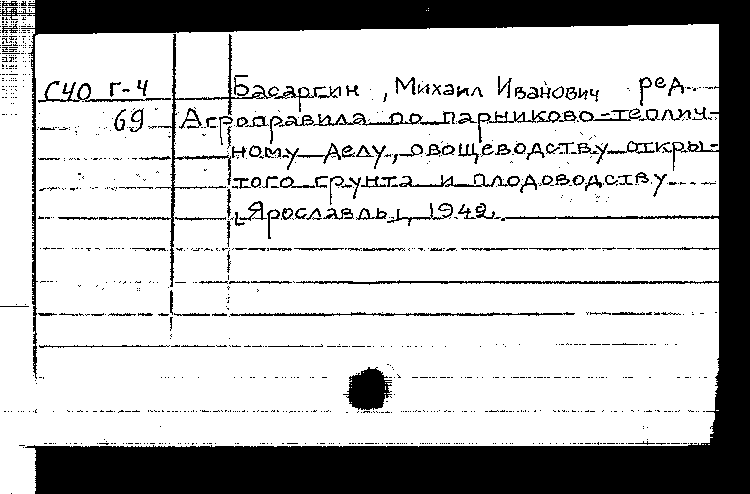 С40 Г-4 Басаргин, Михаил Иванович ред.
69 Агроправила по парниково-теплич-
ному делу, овощеводству откры-
того грунта и плодоводству.
[Ярославль], 1942.